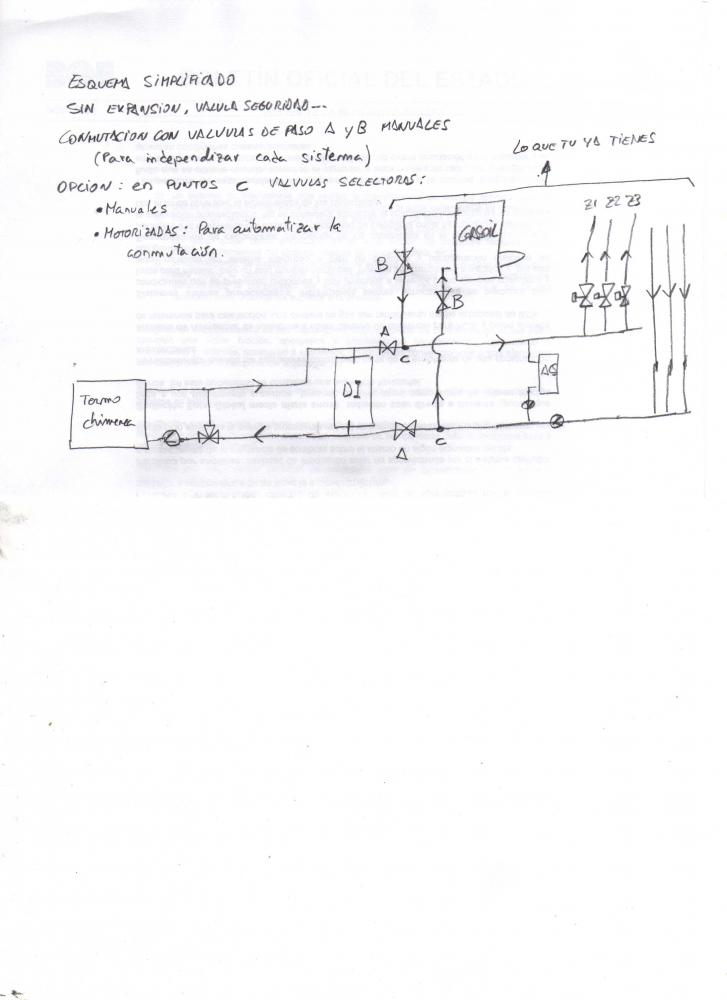 ESQUEMA SIMPLIFICADO
SIN EXPANSION, VALVULA SEGURIDAD---
CONMUTACION CON VALVULAS DE PASO A y B MANUALES
(Para independizar cada sistema)
OPCION: en PUNTOS C VALVULAS SELECTORAS:
• Manuales
• MOTORIZADAS: Para automatizar la
conmutación.
LO QUE TU YA TIENES
Z1 Z2 Z3
GASOIL
B
B
A
C
DI
AS
Termo
chimenea
A
C